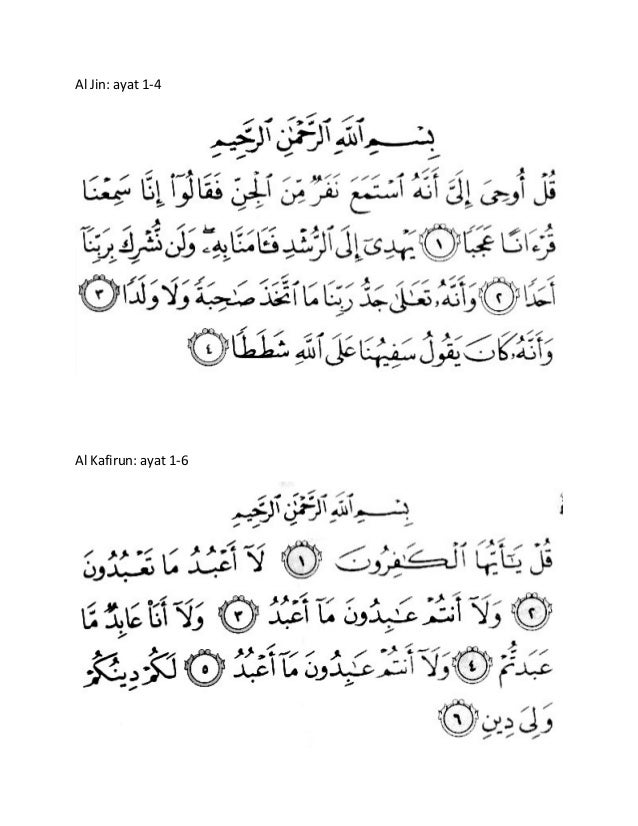 Al Jin: ayat 1-4
بِسْمِ ٱللَّهِ ٱلرَّحْمَٰنِ ٱلرَّحِيمِ
قُلْ أُوحِىَ إِلَىَّ أَنَّهُ ٱسْتَمَعَ نَفَرٌ مِّنَ ٱلْجِنِّ فَقَالُوٓا۟ إِنَّا سَمِعْنَا
قُرْءَانًا عَجَبًا ١ يَهْدِىٓ إِلَى ٱلرُّشْدِ فَـَٔامَنَّا بِهِۦ ۖ وَلَن نُّشْرِكَ بِرَبِّنَآ
أَحَدًا ٢ وَأَنَّهُۥ تَعَٰلَىٰ جَدُّ رَبِّنَا مَا ٱتَّخَذَ صَٰحِبَةً وَلَا وَلَدًا ٣
وَأَنَّهُۥ كَانَ يَقُولُ سَفِيهُنَا عَلَى ٱللَّهِ شَطَطًا ٤
Al Kafirun: ayat 1-6
بِسْمِ ٱللَّهِ ٱلرَّحْمَٰنِ ٱلرَّحِيمِ
قُلْ يَٰٓأَيُّهَا ٱلْكَٰفِرُونَ ١ لَآ أَعْبُدُ مَا تَعْبُدُونَ
٢ وَلَآ أَنتُمْ عَٰبِدُونَ مَآ أَعْبُدُ ٣ وَلَآ أَنَا۠ عَابِدٌ مَّا
عَبَدتُّمْ ٤ وَلَآ أَنتُمْ عَٰبِدُونَ مَآ أَعْبُدُ ٥ لَكُمْ دِينُكُمْ
وَلِىَ دِينِ ٦